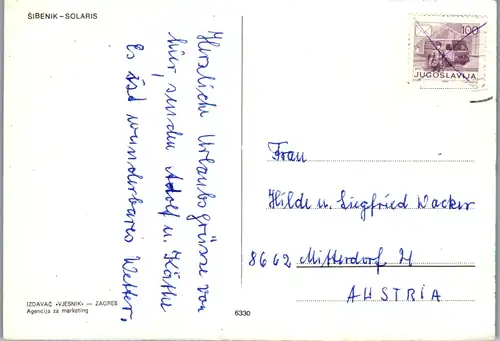 ŠIBENIK – SOLARIS
Herzliche Urlaubsgrüsse von
hier, senden Adolf u. Käthe
Es ist wunderbares Wetter,
IZDAVAČ »VJESNIK« — ZAGREB
Agencija za marketing
6330
100
JUGOSLAVIJA
Frau
Hilde u. Siegfried Wacker
8662 Mitterdorf
AUSTRIA